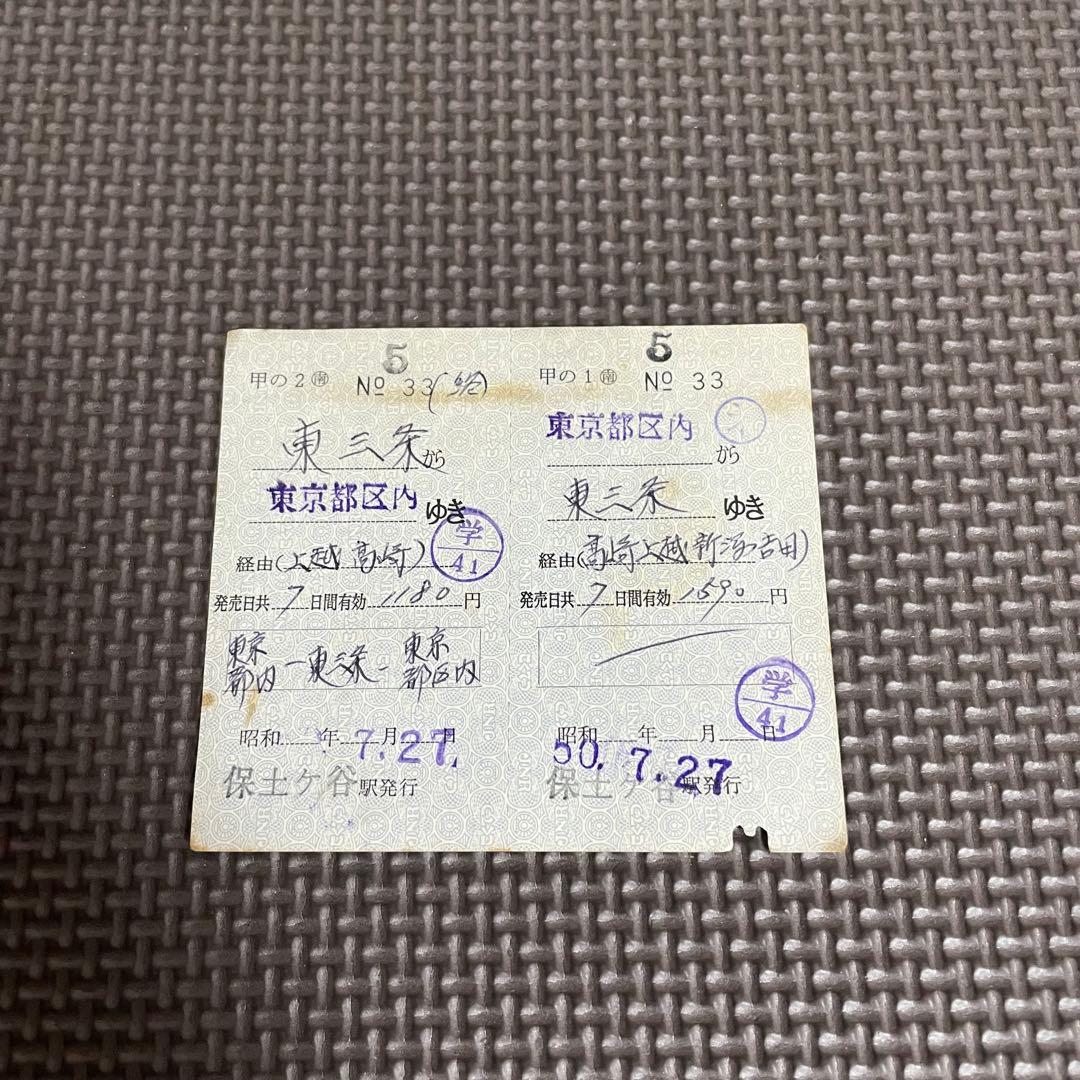 5
甲の2 ㊞ № 33
東三条から
東京都区内ゆき
学
41
経由(上越 高崎)
発売日共 7 日間有効 1180 円
東京都区内-東三条-東京都区内
昭和 年 7.月27.日
保土ケ谷駅発行
5
甲の1 № 33
東京都区内から
東三条ゆき
経由(高崎上越新潟吉田)
発売日共 7 日間有効 1590 円
学
41
昭和50.年7.月27日
保土ケ谷駅発行